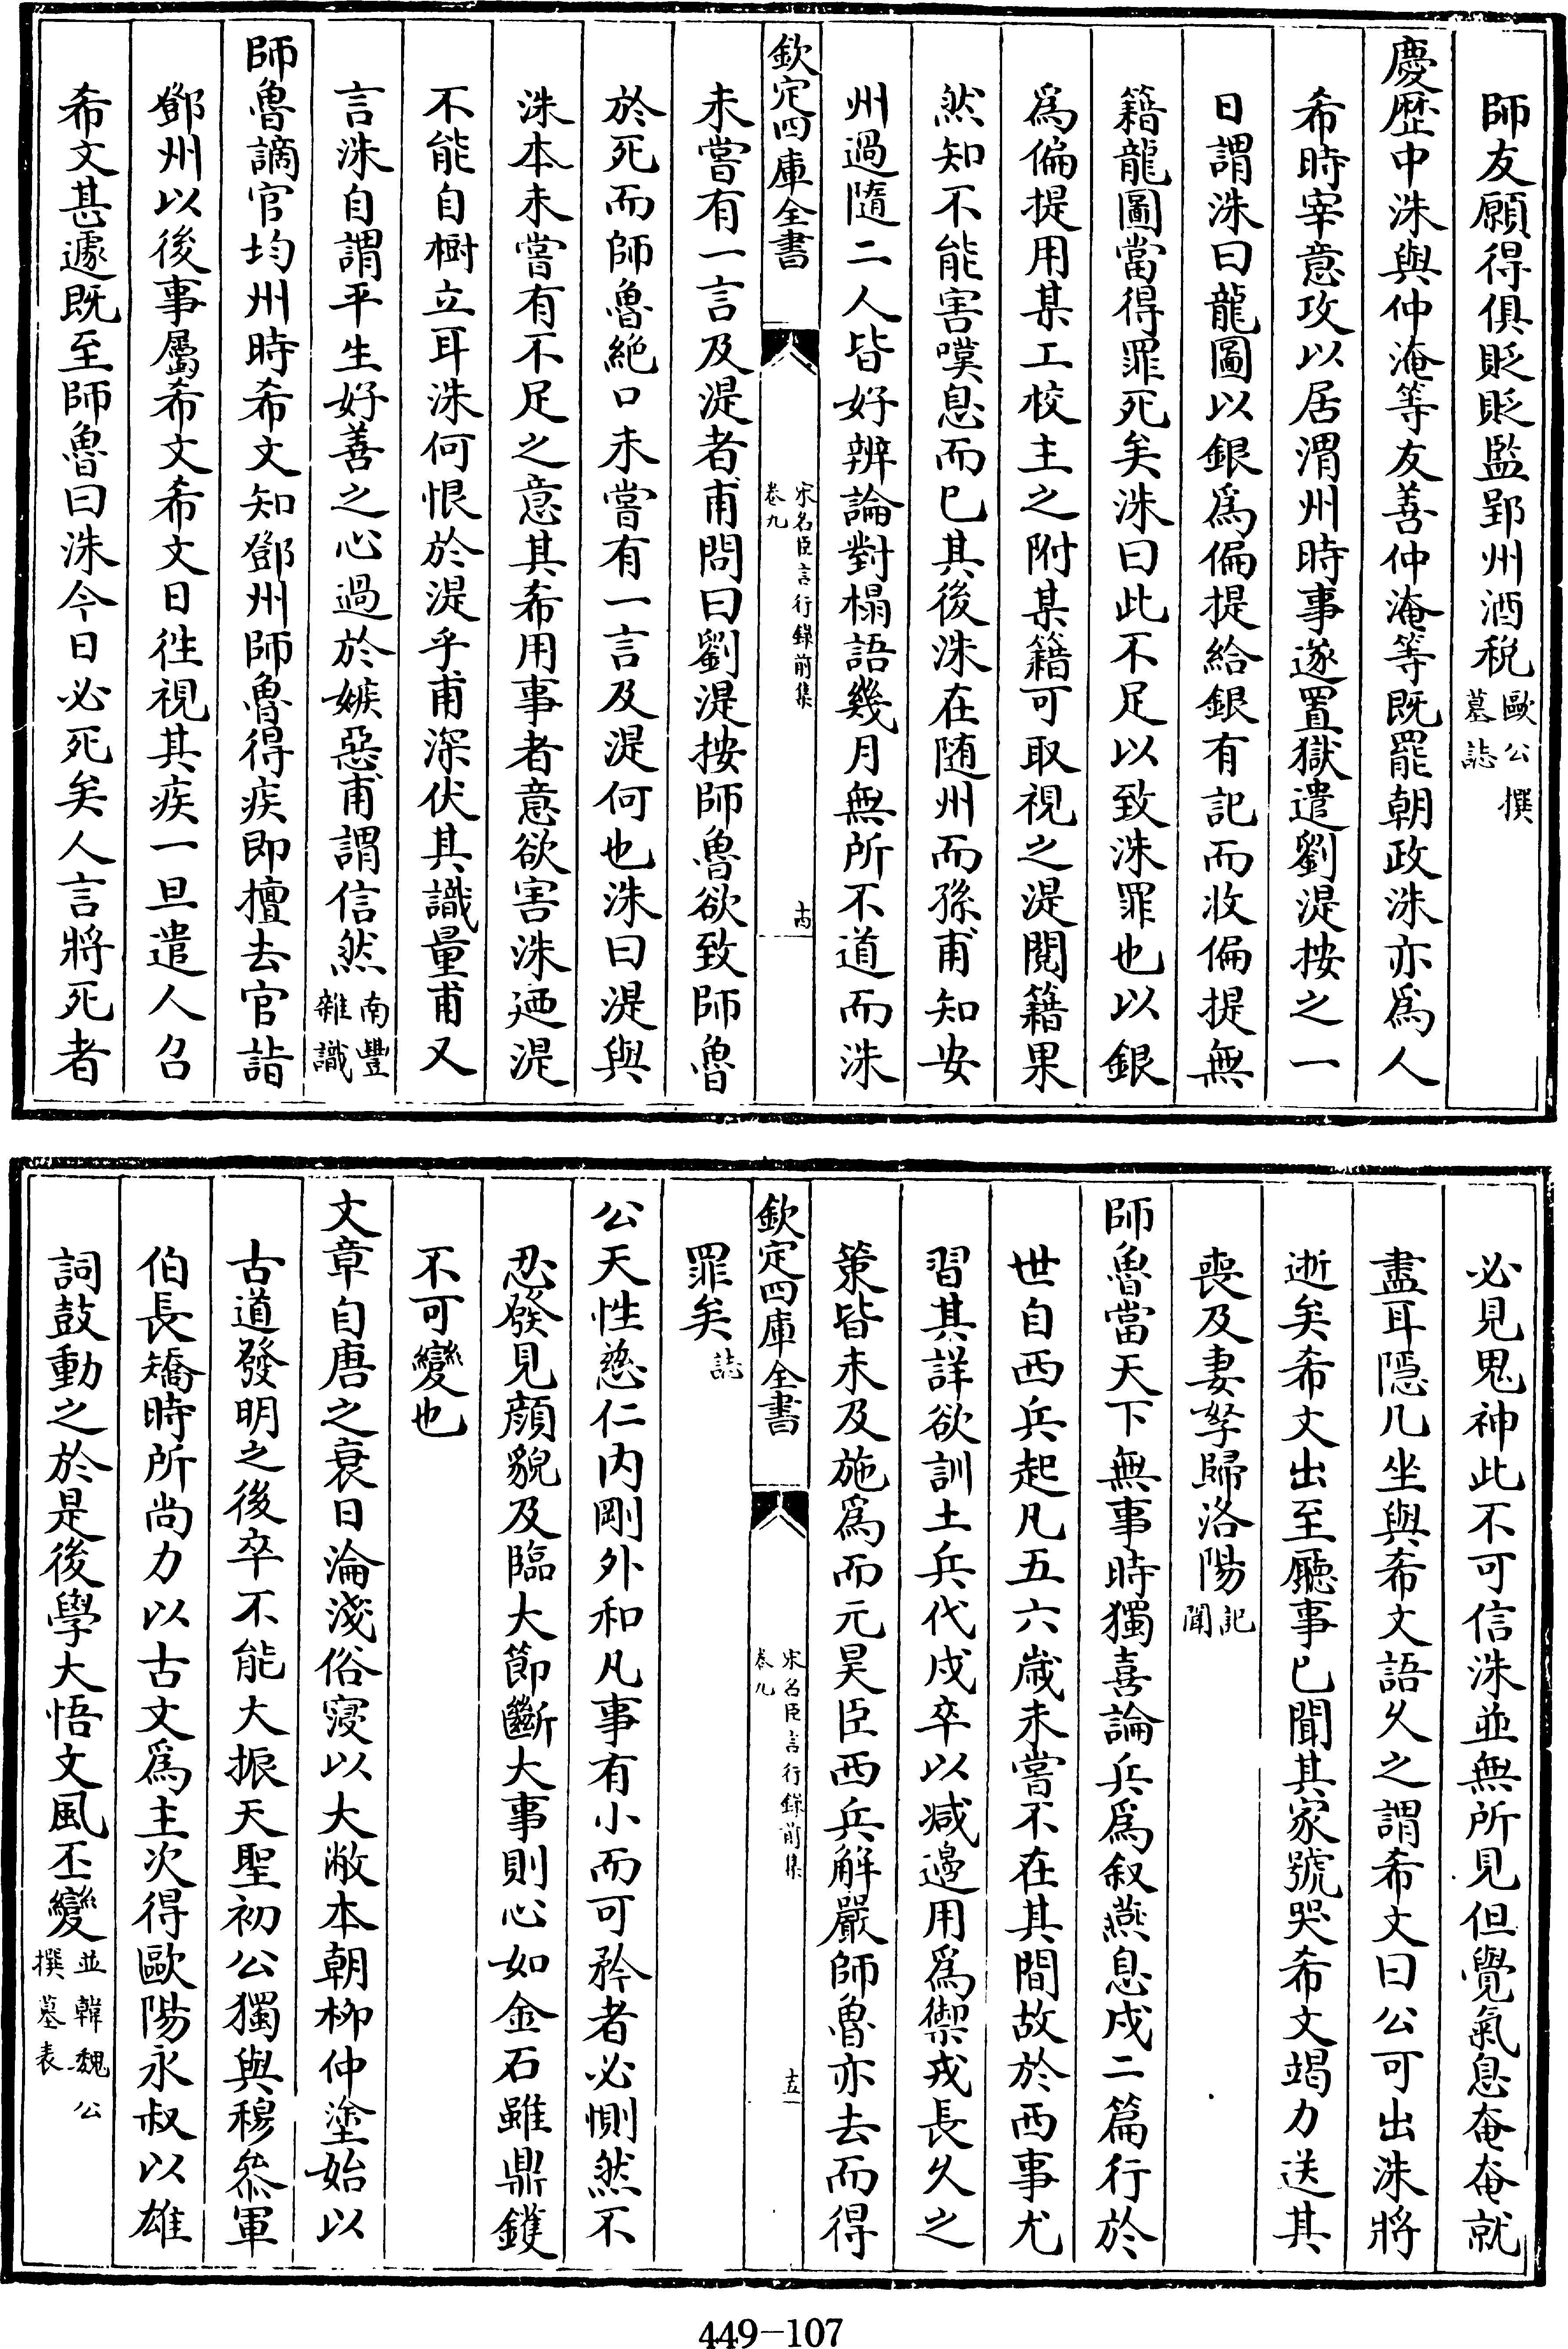 師友願得俱貶貶監郢州酒税歐公撰墓誌
慶歴中洙與仲淹等友善仲淹等既罷朝政洙亦為人
希時宰意攻以居渭州時事遂置獄遣劉湜按之一
日謂洙曰龍圖以銀為偏提給銀有記而收偏提無
籍龍圖當得罪死矣洙曰此不足以致洙罪也以銀
為偏提用某工校主之附某籍可取視之湜閱籍果
然知不能害嘆息而已其後洙在随州而孫甫知安
州過隨二人皆好辨論對榻語幾月無所不道而洙
欽定四庫全書
宋名臣言行錄前集
卷九
十四
未嘗有一言及湜者甫問曰劉湜按師魯欲致師魯
於死而師魯絶口未嘗有一言及湜何也洙曰湜與
洙本未嘗有不足之意其希用事者意欲害洙廼湜
不能自樹立耳洙何恨於湜乎甫深伏其識量甫又
言洙自謂平生好善之心過於嫉惡甫謂信然南豐雜識
師魯謫官均州時希文知鄧州師魯得疾即擅去官詣
鄧州以後事屬希文希文日徃視其疾一旦遣人召
希文甚遽既至師魯曰洙今日必死矣人言將死者
必見鬼神此不可信洙並無所見但覺氣息奄奄就
盡耳隱几坐與希文語久之謂希文曰公可出洙將
逝矣希文出至廳事已聞其家號哭希文竭力送其
喪及妻孥歸洛陽記聞
師魯當天下無事時獨喜論兵為叙燕息戍二篇行於
世自西兵起凡五六歳未嘗不在其間故於西事尤
習其詳欲訓土兵代戍卒以减邊用為禦戎長久之
策皆未及施為而元昊臣西兵解嚴師魯亦去而得
欽定四庫全書
宋名臣言行錄前集
卷九
十五
罪矣誌
公天性慈仁内剛外和凡事有小而可矜者必惻然不
忍發見顔貌及臨大節斷大事則心如金石雖鼎鑊
不可變也
文章自唐之衰日淪淺俗寖以大敝本朝柳仲塗始以
古道發明之後卒不能大振天聖初公獨與穆叅軍
伯長矯時所尚力以古文為主次得歐陽永叔以雄
詞鼓動之於是後學大悟文風丕變並韓魏公撰墓表
449-107